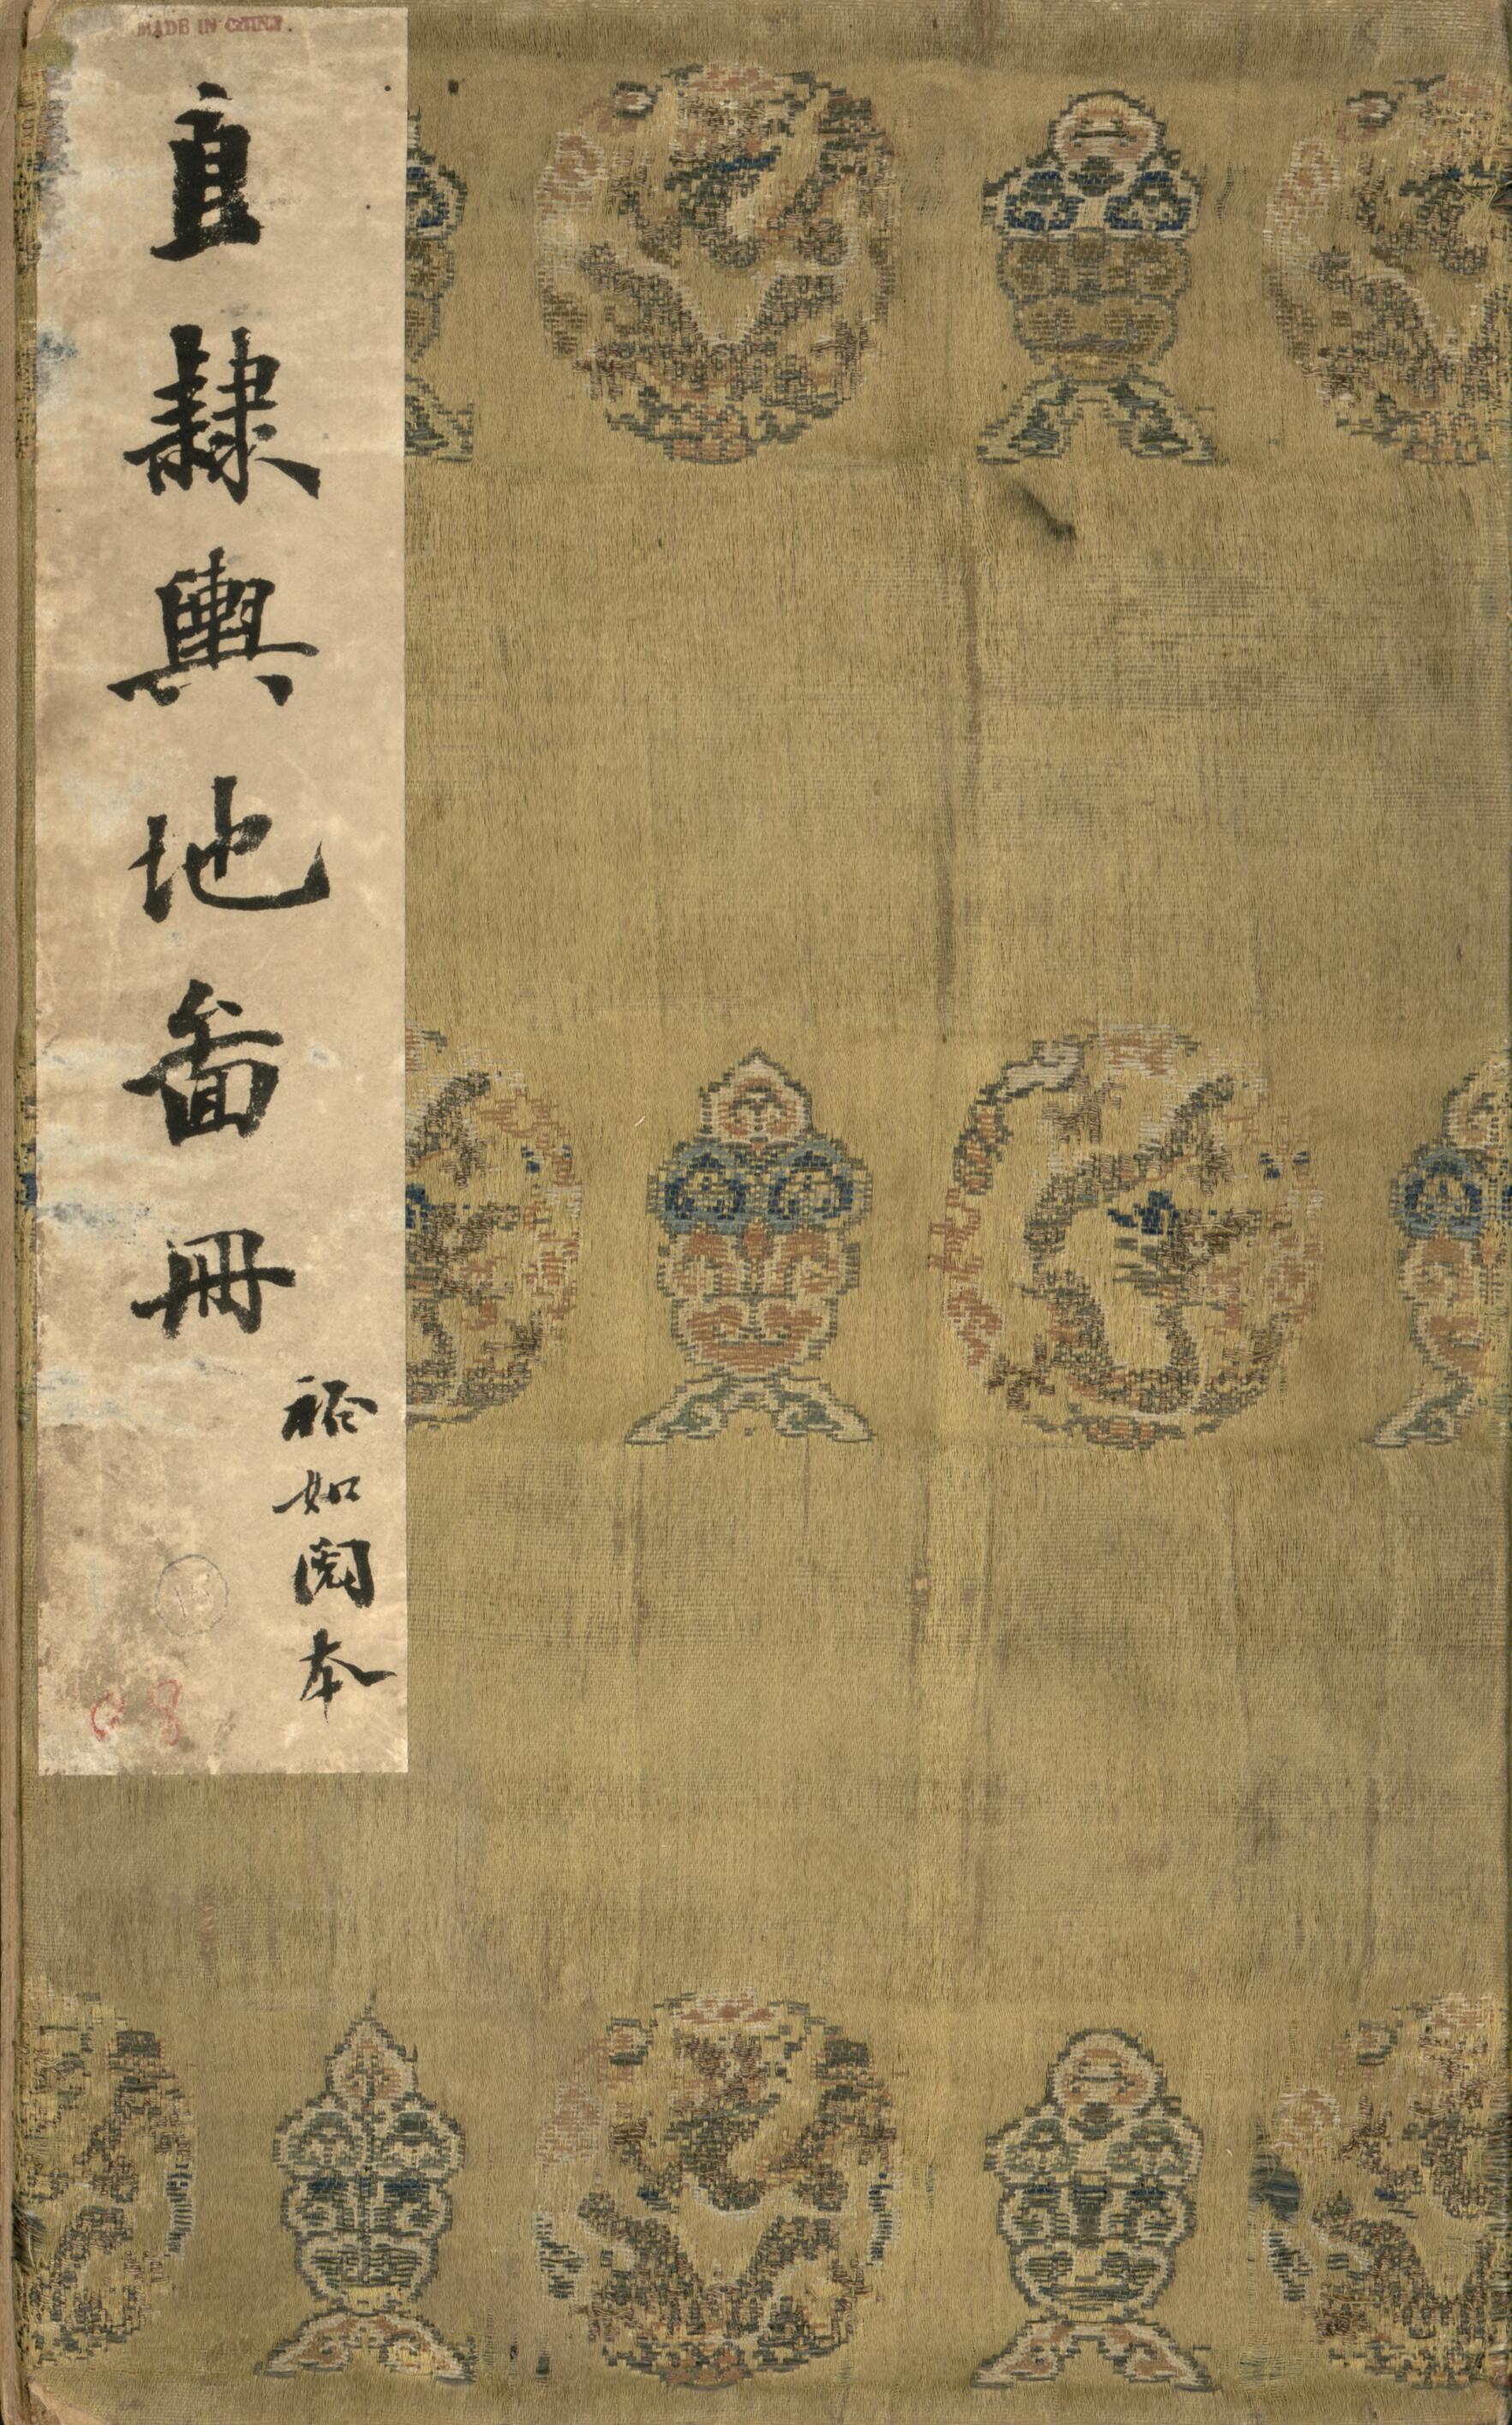 MADE IN CHINA.
直隸輿地啚冊
裕如閱本
15
08